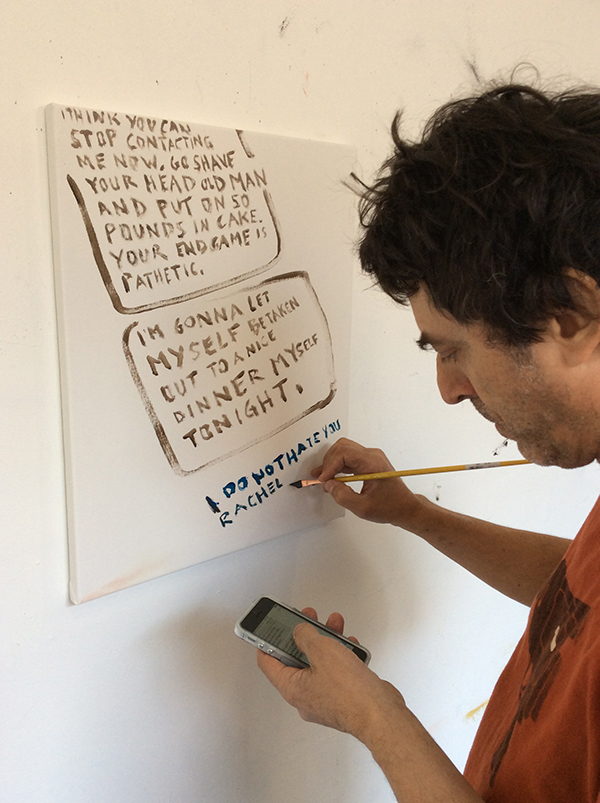 I THINK YOU CAN
STOP CONTACTING
ME NOW. GO SHAVE
YOUR HEAD OLD MAN
AND PUT ON 50
POUNDS IN CAKE.
YOUR ENDGAME IS
PATHETIC.
I'M GONNA LET
MYSELF BE TAKEN
OUT TO A NICE
DINNER MYSELF
TONIGHT.
I DO NOT HATE YOU
RACHEL